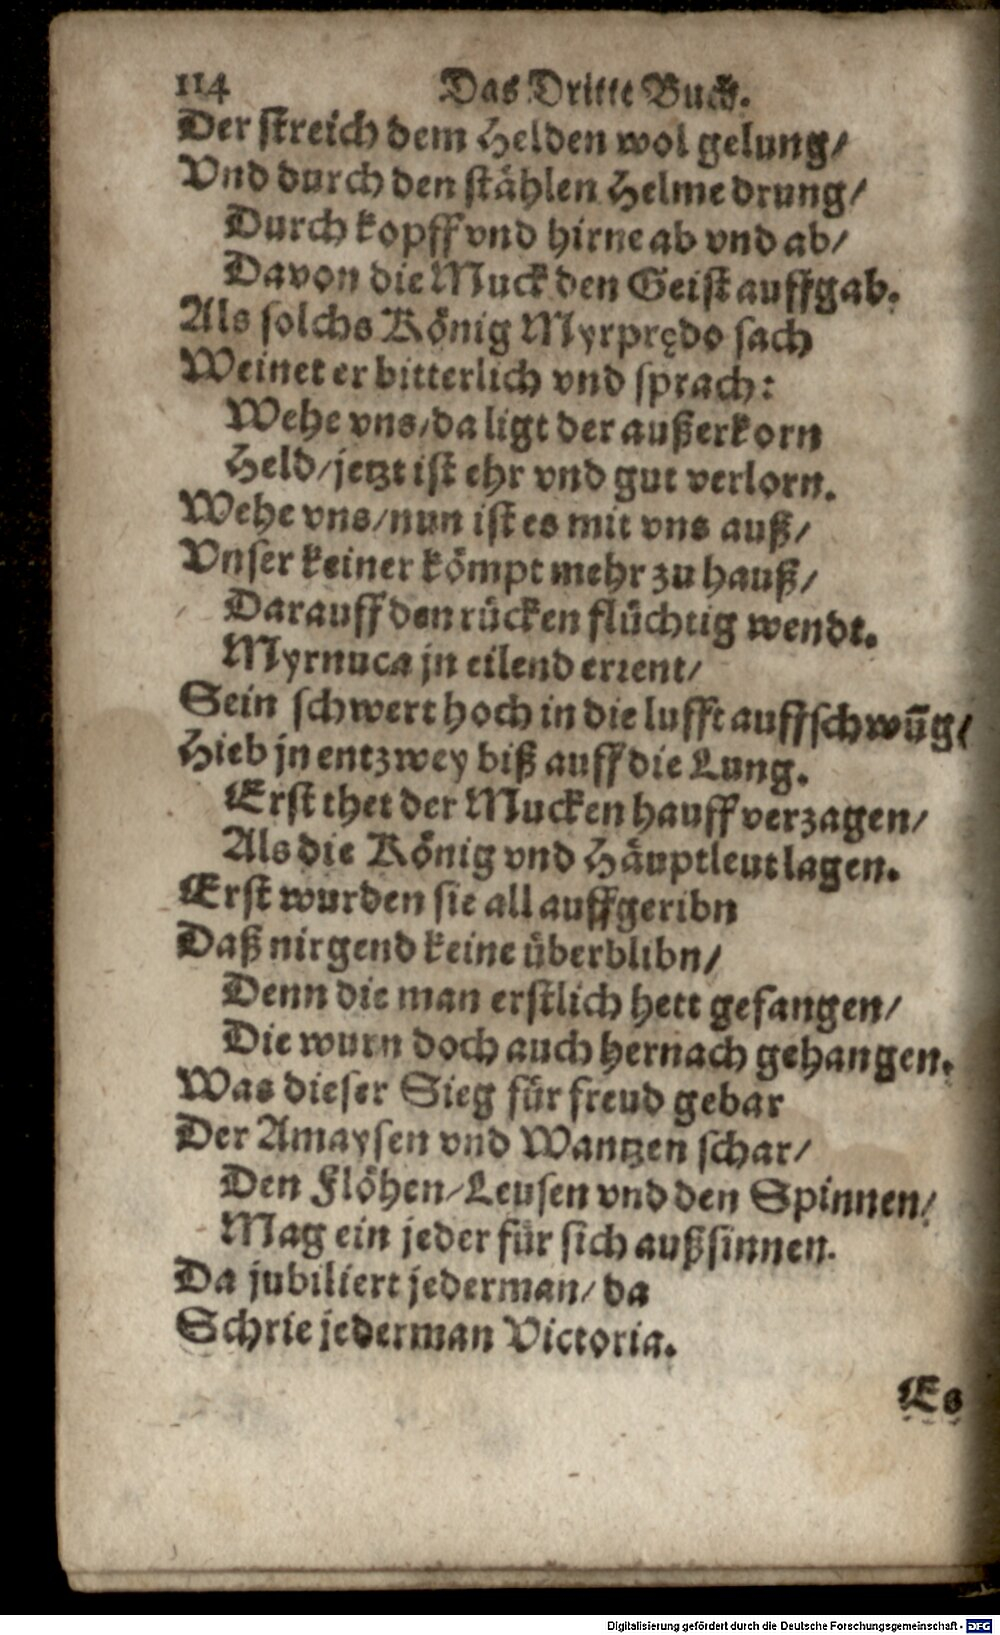 114 Das Dritte Buch.
Der streich dem Helden wol gelung/
Vnd durch den stählen Helme drung/
Durch kopff vnd hirne ab vnd ab/
Davon die Muck den Geist auffgab.
Als solchs König Myrprędo sach
Weinet er bitterlich vnd sprach:
Wehe vns/da ligt der außerkorn
Held/jetzt ist ehr vnd gut verlorn.
Wehe vns/nun ist es mit vns auß/
Vnser keiner kömpt mehr zu hauß/
Darauff den rücken flüchtig wendt.
Myrnuca jn eilend errent/
Sein schwert hoch in die lufft auffschwūg/
Hieb jn entzwey biß auff die Lung.
Erst thet der Mucken hauff verzagen/
Als die König vnd Häuptleut lagen.
Erst wurden sie all auffgeribn
Daß nirgend keine überblibn/
Denn die man erstlich hett gefangen/
Die wurn doch auch hernach gehangen.
Was dieser Sieg für freud gebar
Der Amaysen vnd Wantzen schar/
Den Flöhen/Leusen vnd den Spinnen/
Mag ein jeder für sich außsinnen.
Da jubiliert jederman/da
Schrie jederman Victoria.
Es
Digitalisierung gefördert durch die Deutsche Forschungsgemeinschaft - DFG